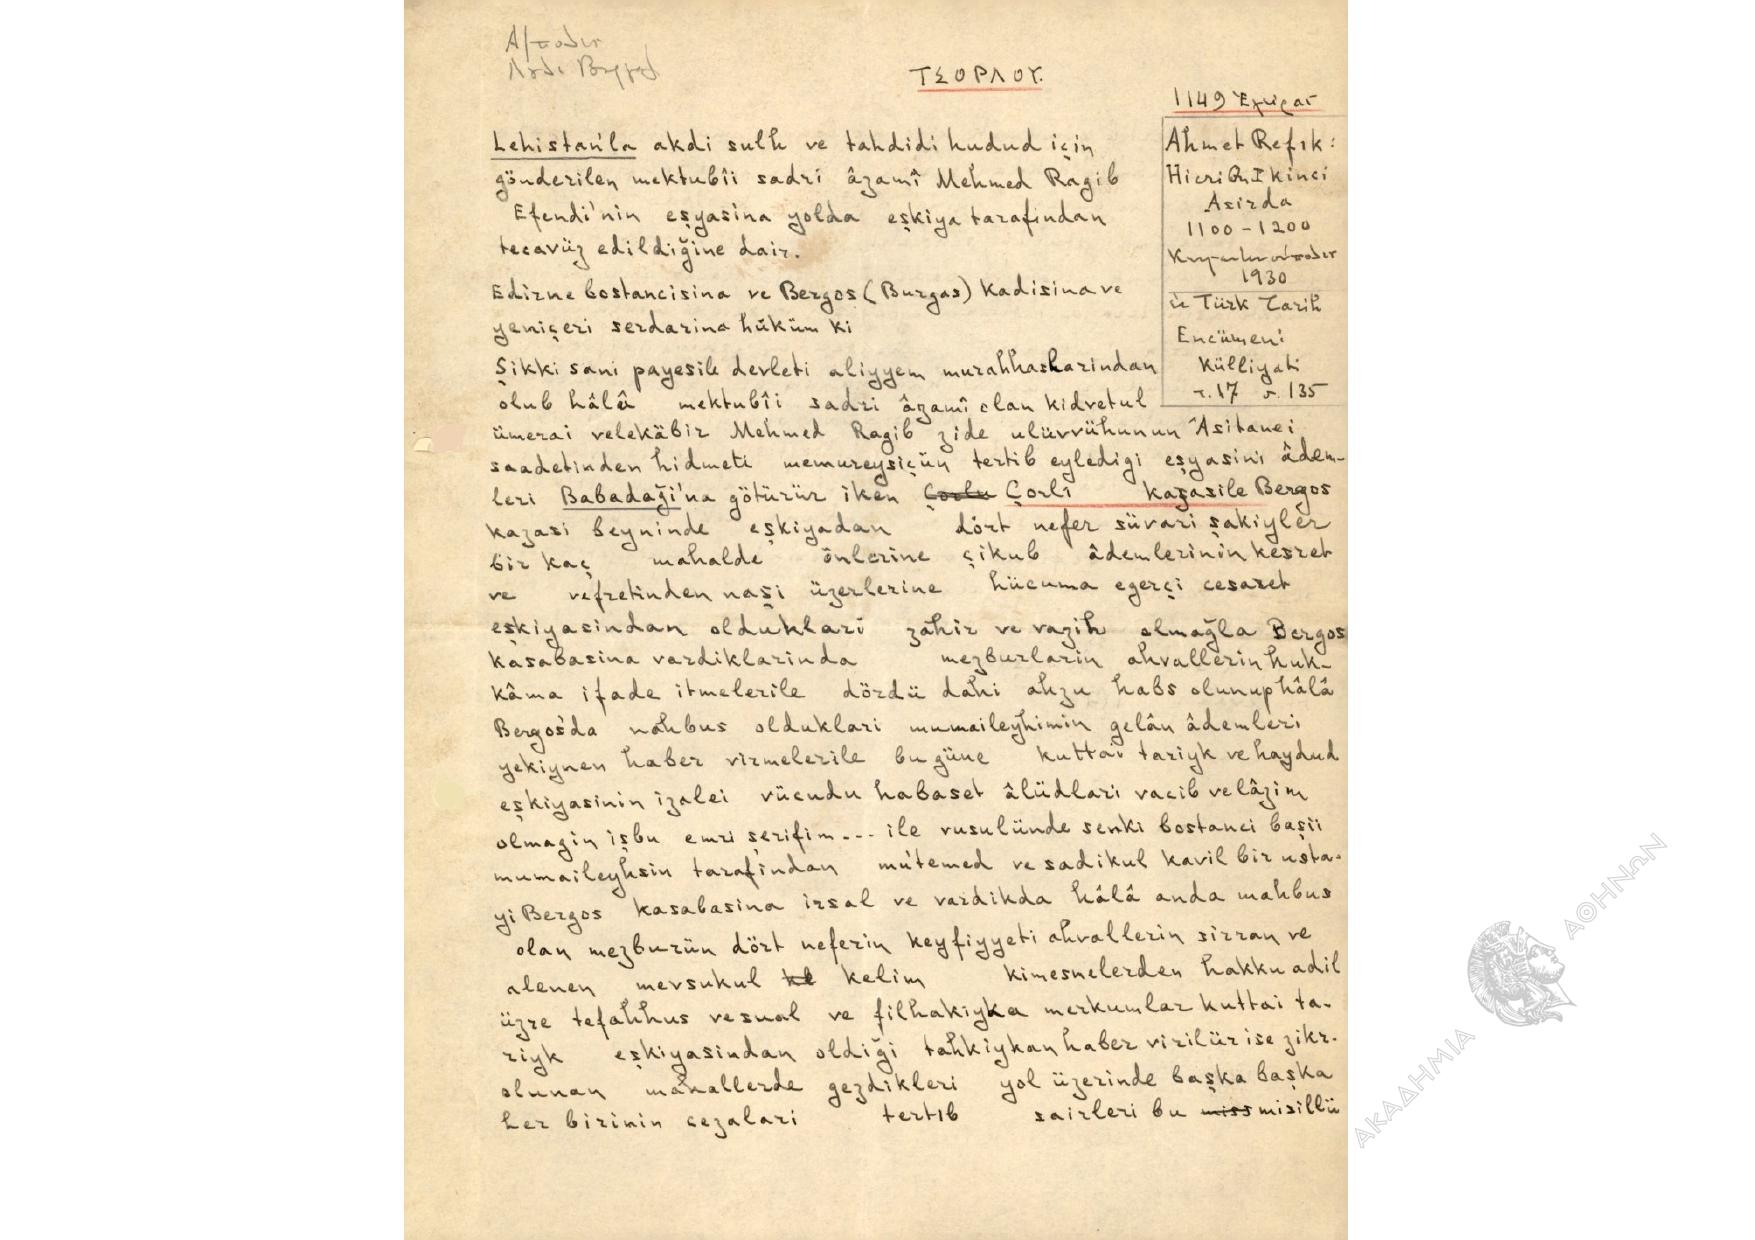 ΤΣΟΡΛΟΥ.
1149 Ἐγίρας
Ahmet Refik:
Hicri On Ikinci
Asirda
1100-1200
1930
Türk Tarih
Encümeni
Külliyati
τ.17 σ.135
Lehistan'la akdi sulh ve tahdidi hudud için
gönderilen mektubîi sadri âzamî Mehmed Ragib
Efendi'nin eşyasina yolda eşkiya tarafindan
tecavüz edildiğine dair.
Edirne bostancisina ve Bergos (Burgas) kadisina ve
yeniçeri serdarina hüküm ki
Şikki sani payesile devleti aliyyem murahhaslarindan
olub hâlâ mektubîi sadri âzamî olan kidvetul
ümerai velekâbir Mehmed Ragib zide ulüvvühunun Asitanei
saadetinden hidmeti memureysiçün tertib eyledigi eşyasini âdem-
leri Babadaği'na götürür iken Çorlu Çorlî kazasile Bergos
kazasi beyninde eşkiyadan dört nefer süvari şakiyler
bir kaç mahalde önlerine çikub âdemlerinin kesret
ve vefretinden naşi üzerlerine hücuma egerçi cesaret
eşkiyasindan olduklari zahir ve vazih olmağla Bergos
kasabasina vardiklarinda mezburlarin ahvallerin huk-
kâma ifade itmelerile dördü dahi ahzu habs olunup hâlâ
Bergos'da mahbus olduklari mumaileyhimin gelân âdemleri
yekiynen haber virmelerile bu güne kuttai tariyk ve haydud
eşkiyasinin izalei vücudu habaset âlüdlari vacib ve lâzim
olmagin işbu emri şerifim--- ile vusulünde senki bostanci başii
mumaileyhsin tarafindan mu'temed ve sadikul kavil bir usta-
yi Bergos kasabasina irsal ve vardikda hâlâ anda mahbus
olan mezburün dört neferin keyfiyyeti ahvallerin sirran ve
alenen mevsukul kel kelim kimesnelerden hakku adil
üzre tefahhus ve sual ve filhakiyka merkumlar kuttai ta-
riyk eşkiyasindan oldiği tahkiykan haber virilür ise zikr-
olunan mahallerde gezdikleri yol üzerinde başka başka
her birinin cezalari tertib sairleri bu miss misillü
ΑΚΑΔΗΜΙΑ ΑΘΗΝΩΝ